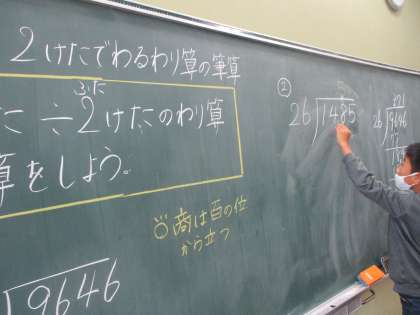 2けたでわるわり算の筆算
ふた
た÷2けたのわり算
算をしよう。
商は百の位
から立つ
9646
②
26)1485
26)9696